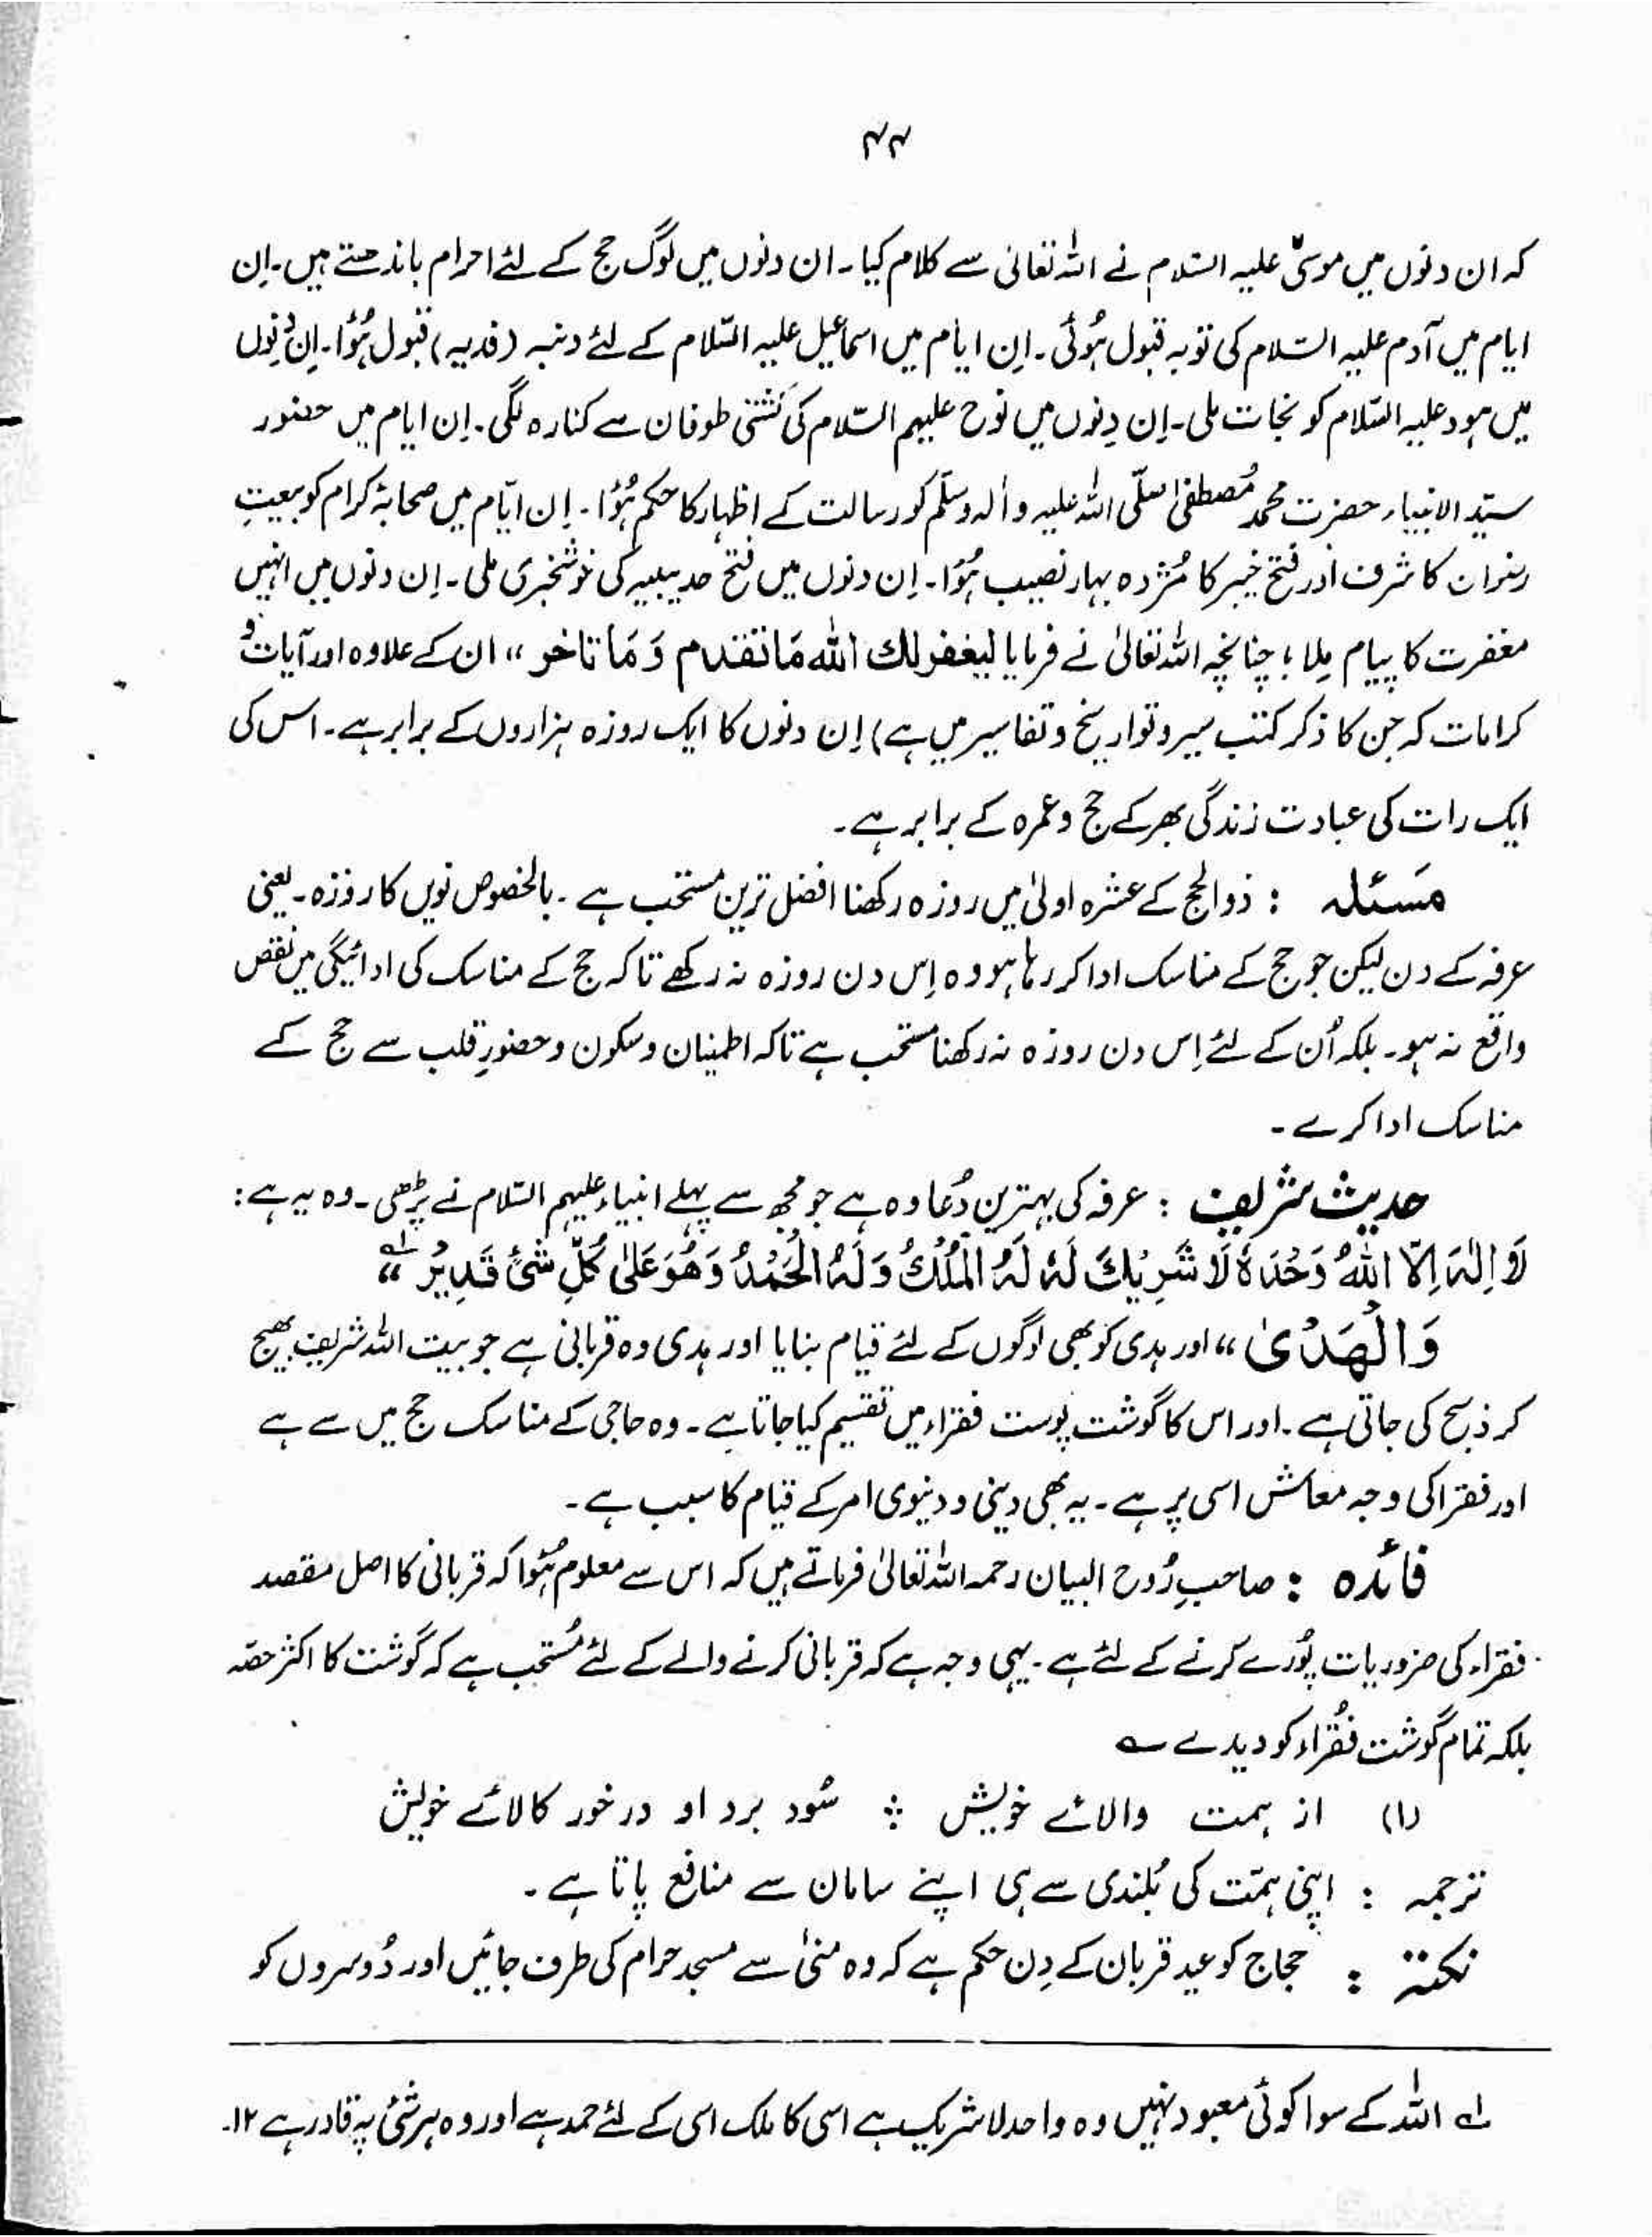 ۴۴
کہ ان دنوں میں موسیٰؑ علیہ السّلام نے اللہ تعالیٰ سے کلام کیا۔ ان دنوں میں لوگ حج کے لئے احرام باندھتے ہیں۔ اِن
ایام میں آدم علیہ السّلام کی توبہ قبول ہُوئی۔ اِن ایام میں اسماعیل علیہ السّلام کے لئے دنبہ (فدیہ) قبول ہُؤا۔ اِن دِنوں
میں ہود علیہ السّلام کو نجات ملی۔ اِن دِنوں میں نوح علیہم السّلام کی کَشتی طوفان سے کنارہ لگی۔ اِن ایام میں حضور
سیّد الانبیاء حضرت محمد مُصطفیٰ صلّی اللہ علیہ واٰلہٖ وسلّم کو رسالت کے اظہار کا حکم ہُؤا۔ اِن ایّام میں صحابۂ کرام کو بیعتِ
رضوان کا شرف اور فتح خیبر کا مُژدہ بہار نصیب ہُؤا۔ اِن دنوں میں فتح حدیبیہ کی خوشخبری ملی۔ اِن دنوں میں انہیں
مغفرت کا پیام مِلا؛ چنانچہ اللہ تعالیٰ نے فرمایا لیغفر لك الله مَا تقدم وَمَا تاخر‘‘ ان کے علاوہ اور آیات و
کرامات کہ جن کا ذکر کتب سیر و تواریخ و تفاسیر میں ہے) اِن دنوں کا ایک روزہ ہزاروں کے برابر ہے۔ اس کی
ایک رات کی عبادت زندگی بھر کے حج و عمرہ کے برابر ہے۔
مَسئلہ : ذوالحج کے عشرہ اولیٰ میں روزہ رکھنا افضل ترین مستحب ہے۔ بالخصوص نویں کا روزہ۔ یعنی
عرفہ کے دن لیکن جو حج کے مناسک ادا کر رہا ہو وہ اِس دن روزہ نہ رکھے تاکہ حج کے مناسک کی ادائیگی میں نقص
واقع نہ ہو۔ بلکہ اُن کے لئے اِس دن روزہ نہ رکھنا مستحب ہے تاکہ اطمینان و سکون و حضورِ قلب سے حج کے
مناسک ادا کرے۔
حدیث شریف : عرفہ کی بہترین دُعا وہ ہے جو مجھ سے پہلے انبیاء علیہم السّلام نے پڑھی۔ وہ یہ ہے:
لَا اِلٰہَ اِلَّا اللّٰہُ وَحْدَہٗ لَا شَرِیْكَ لَہٗ لَہُ الْمُلْكُ وَلَہُ الْحَمْدُ وَھُوَ عَلٰی کُلِّ شَیْءٍ قَدِیْرٌ ‘‘ لہ
وَالْھَدْیَ ‘‘ اور ہدی کو بھی لوگوں کے لئے قیام بنایا اور ہدی وہ قربانی ہے جو بیت اللہ شریف بھیج
کر ذبح کی جاتی ہے۔ اور اس کا گوشت پوست فقراء میں تقسیم کیا جاتا ہے۔ وہ حاجی کے مناسک حج میں سے ہے
اور فقرا کی وجہ معاش اسی پر ہے۔ یہ بھی دینی و دنیوی امر کے قیام کا سبب ہے۔
فائدہ : صاحبِ رُوح البیان رحمہ اللہ تعالیٰ فرماتے ہیں کہ اس سے معلوم ہُؤا کہ قربانی کا اصل مقصد
فقراء کی ضروریات پُورے کرنے کے لئے ہے۔ یہی وجہ ہے کہ قربانی کرنے والے کے لئے مُستحب ہے کہ گوشت کا اکثر حصّہ
بلکہ تمام گوشت فُقراء کو دیدے ؎
(۱) از ہمت والائے خویش ؞ سُود برد او درخور کالائے خویش
ترجمہ : اپنی ہمّت کی بُلندی سے ہی اپنے سامان سے منافع پاتا ہے۔
نکتہ : حجاج کو عید قربان کے دِن حکم ہے کہ وہ منیٰ سے مسجد حرام کی طرف جائیں اور دُوسروں کو
لہ اللہ کے سوا کوئی معبود نہیں وہ واحد لاشریک ہے اسی کا ملک اسی کے لئے حمد ہے اور وہ ہر شئ پہ قادر ہے ۱۲۔